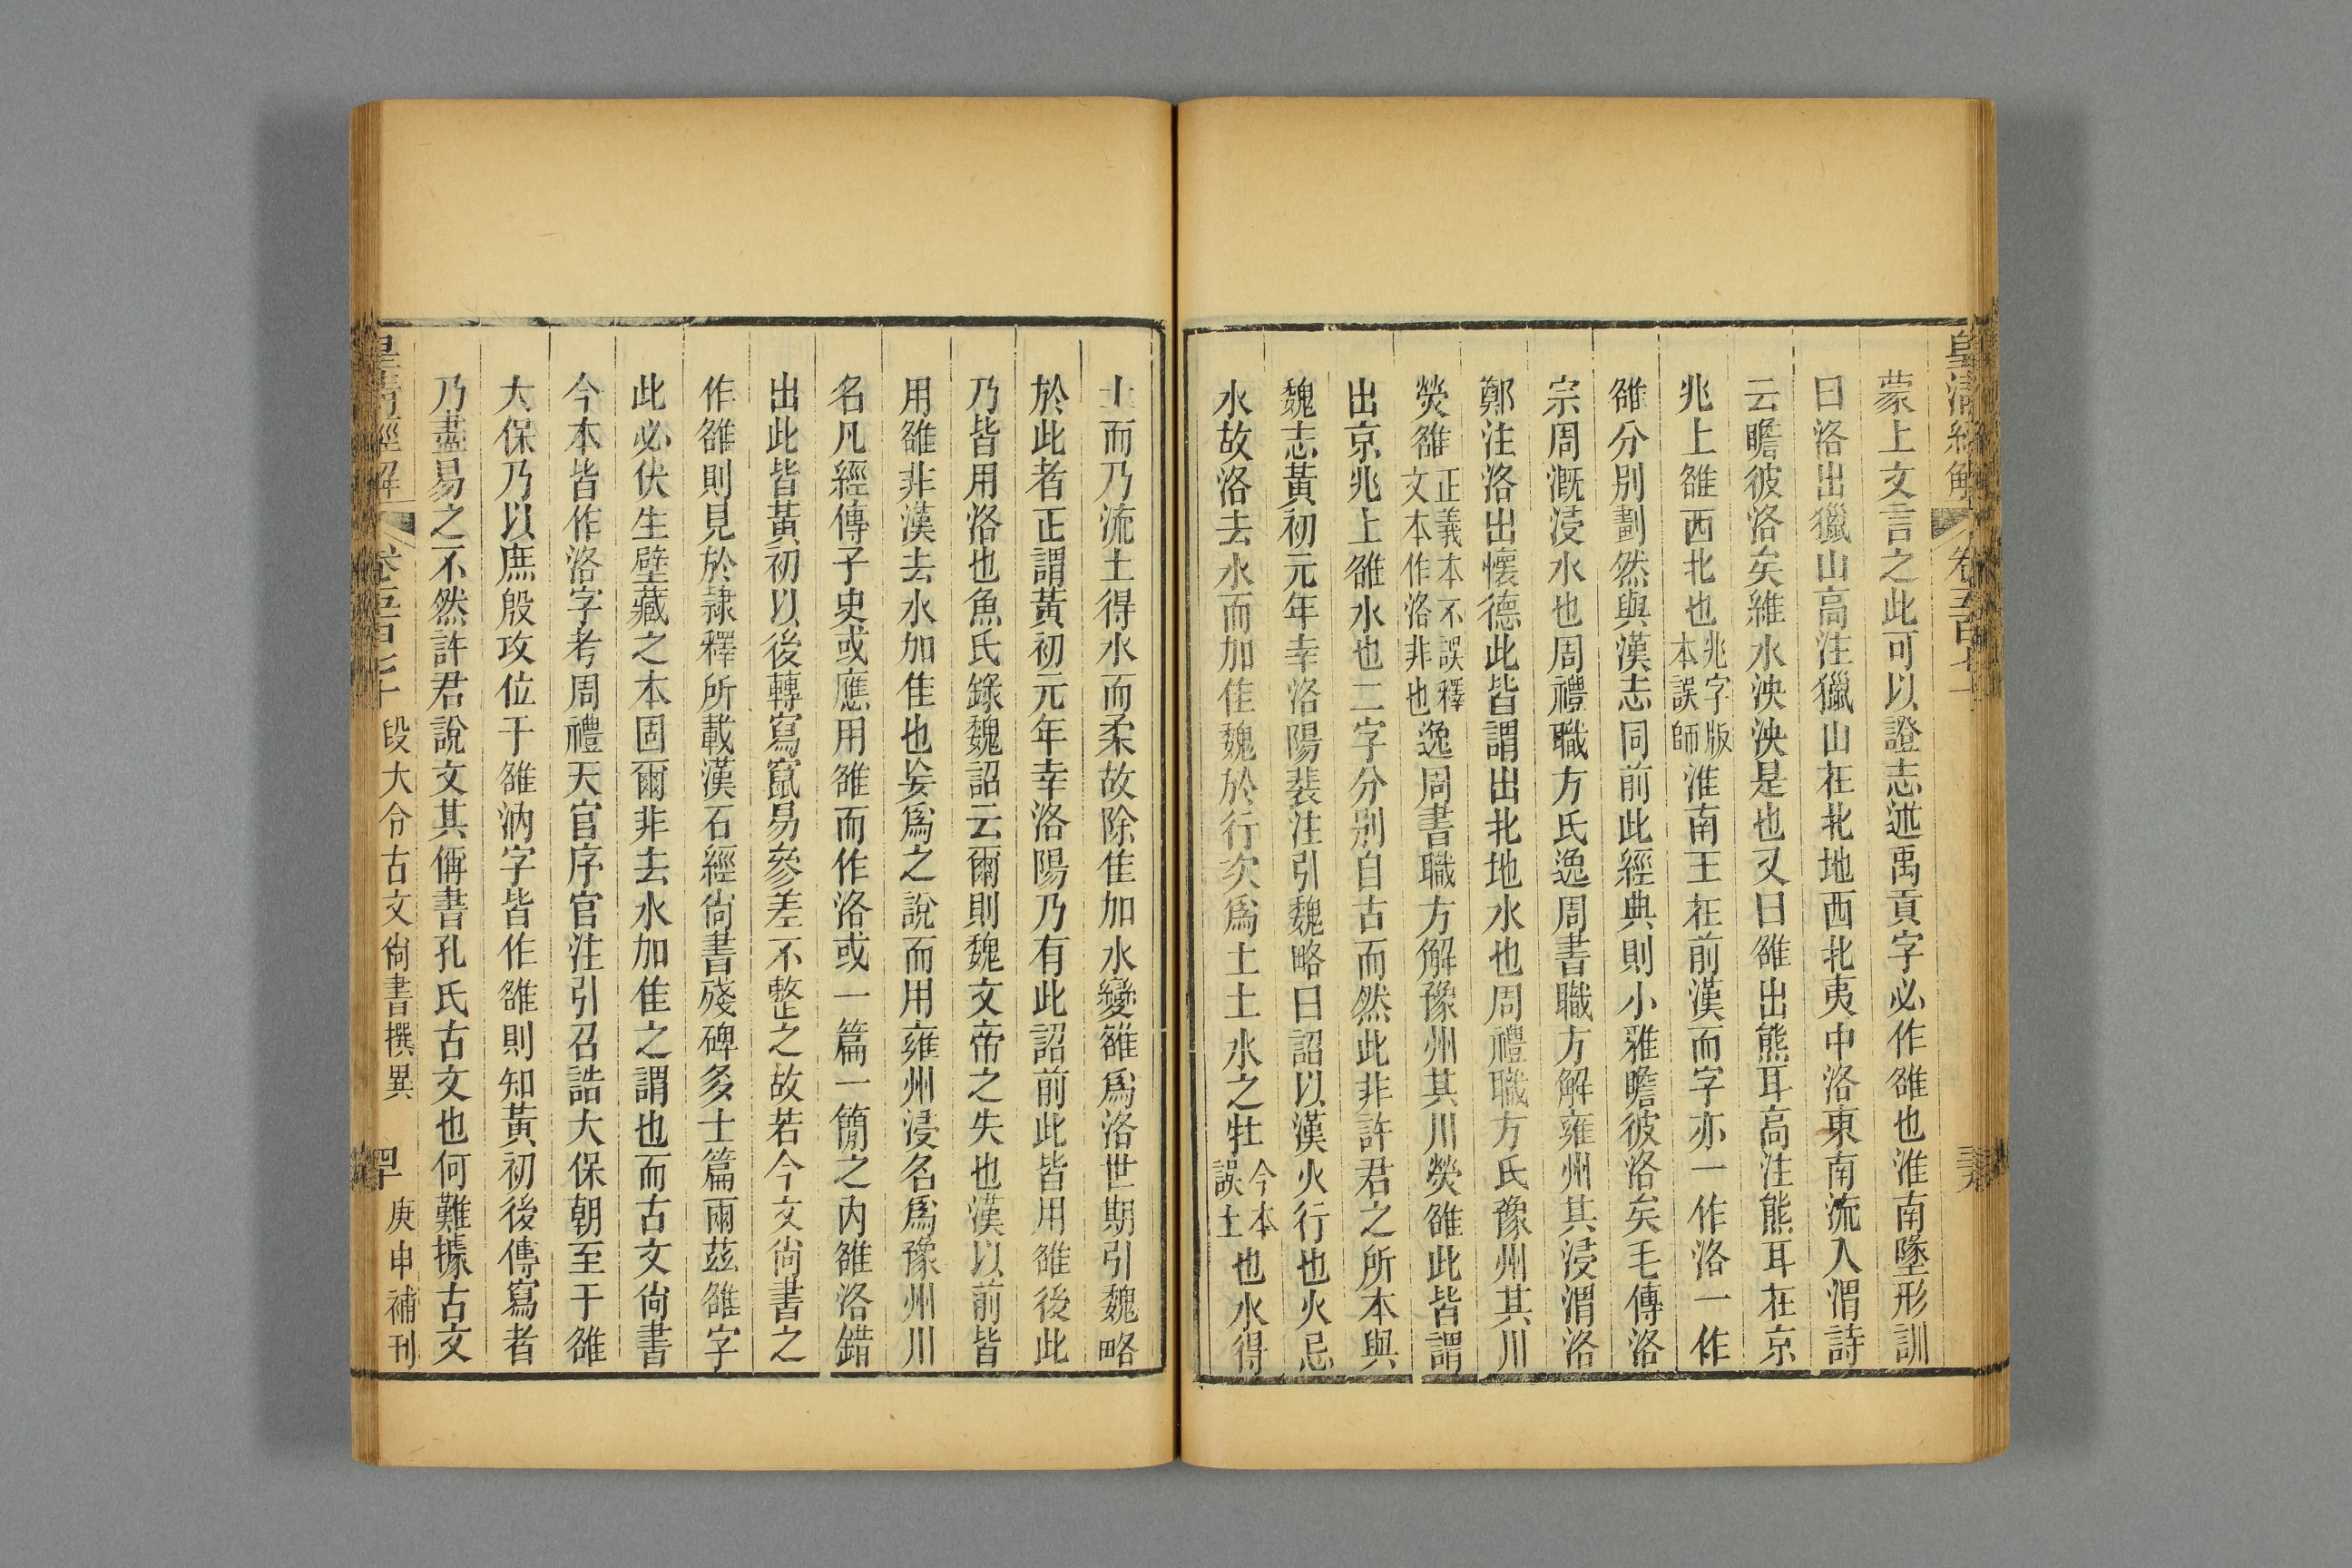 蒙上文言之此可以證志述禹貢字必作雒也淮南墬形訓
曰洛出獵山高注獵山在北地西北夷中洛東南流入渭詩
云瞻彼洛矣維水泱泱是也又曰雒出熊耳高注熊耳在京
兆上雒西北也兆字版本誤師淮南王在前漢而字亦一作洛一作
雒分別劃然與漢志同前此經典則小雅瞻彼洛矣毛傳洛
宗周漑浸水也周禮職方氏逸周書職方解雍州其浸渭洛
鄭注洛出懷德此皆謂出北地水也周禮職方氏豫州其川
熒雒正義本不誤釋文本作洛非也逸周書職方解豫州其川熒雒此皆謂
出京兆上雒水也二字分別自古而然此非許君之所本與
魏志黃初元年幸洛陽裴注引魏略曰詔以漢火行也火忌
水故洛去水而加隹魏於行次爲土土水之牡今本誤土也水得
土而乃流土得水而柔故除隹加水變雒爲洛世期引魏略
於此者正謂黃初元年幸洛陽乃有此詔前此皆用雒後此
乃皆用洛也魚氏錄魏詔云爾則魏文帝之失也漢以前皆
用雒非漢去水加隹也妄爲之說而用雍州浸名爲豫州川
名凡經傳子史或應用雒而作洛或一篇一簡之內雒洛錯
出此皆黃初以後轉寫竄易參差不整之故若今文尙書之
作雒則見於隸釋所載漢石經尙書殘碑多士篇爾茲雒字
此必伏生壁藏之本固爾非去水加隹之謂也而古文尙書
今本皆作洛字考周禮天官序官注引召誥大保朝至于雒
大保乃以庶殷攻位于雒汭字皆作雒則知黃初後傳寫者
乃盡易之不然許君說文其偁書孔氏古文也何難據古文
皇淸經解
卷五百七十
段大令古文尙書撰異
庚申補刊